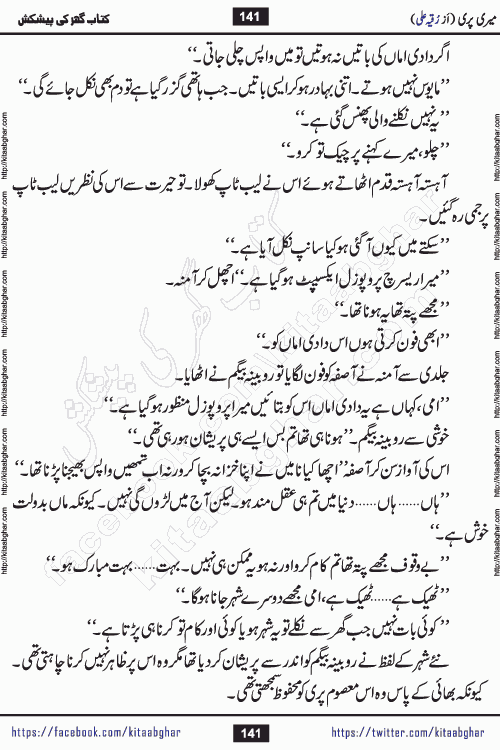 میری پری (از رقیہ علی) 141 کتاب گھر کی پیشکش
اگر دادی اماں کی باتیں نہ ہوتیں تو میں واپس چلی جاتی۔“
”مایوس نہیں ہوتے۔ اتنی بہادر ہو کر ایسی باتیں۔ جب ہاتھی گزر گیا ہے تو دم بھی نکل جائے گی۔“
”یہ نہیں نکلنے والی پھنس گئی ہے۔“
”چلو، میرے کہنے پر چیک تو کرو۔“
آہستہ آہستہ قدم اٹھاتے ہوئے اس نے لیب ٹاپ کھولا۔ تو حیرت سے اس کی نظریں لیب ٹاپ
پر جمی رہ گئیں۔
”سکتے میں کیوں آ گئی ہو کیا سانپ نکل آیا ہے۔“
”میرا ریسرچ پروپوزل ایکسپٹ ہو گیا ہے۔“ اچھل کر آمنہ۔
”مجھے پتہ تھا یہ ہونا تھا۔“
”ابھی فون کرتی ہوں اس دادی اماں کو۔“
جلدی سے آمنہ نے آصفہ کو فون لگایا تو روبینہ بیگم نے اٹھایا۔
”امی، کہاں ہے یہ دادی اماں اس کو بتائیں میرا پروپوزل منظور ہو گیا ہے۔“
خوشی سے روبینہ بیگم۔ ”ہونا ہی تھا تم بس ایسے ہی پریشان ہو رہی تھی۔“
اس کی آواز سن کر آصفہ ”اچھا کیا نا میں نے اپنا خزانہ بچا کر ورنہ اب تمھیں واپس بھیجنا پڑنا تھا۔“
”ہاں...... ہاں...... دنیا میں تم ہی عقل مند ہو۔ لیکن آج میں لڑوں گی نہیں۔ کیونکہ ماں بدولت
خوش ہے۔“
”بے وقوف مجھے پتہ تھا تم کام کرو اور نہ ہو یہ ممکن ہی نہیں۔ بہت...... بہت مبارک ہو۔“
”ٹھیک ہے...... ٹھیک ہے، امی مجھے دوسرے شہر جانا ہوگا۔“
”کوئی بات نہیں جب گھر سے نکلے تو یہ شہر ہو یا کوئی اور کام تو کرنا ہی پڑتا ہے۔“
نئے شہر کے لفظ نے روبینہ بیگم کو اندر سے پریشان کر دیا تھا مگر وہ اس پر ظاہر نہیں کرنا چاہتی تھی۔
کیونکہ بھائی کے پاس وہ اس معصوم پری کو محفوظ سمجھتی تھی۔
http://kitaabghar.com http://kitaabghar.com http://kitaabghar.com http://kitaabghar.com http://kitaabghar.com http://kitaabghar.com
http://kitaabghar.com http://kitaabghar.com http://kitaabghar.com http://kitaabghar.com http://kitaabghar.com http://kitaabghar.com
کتاب گھر کی پیشکش
facebook.com/kitaabghar
kitaabghar.com
https://facebook.com/kitaabghar 141 https://twitter.com/kitaabghar